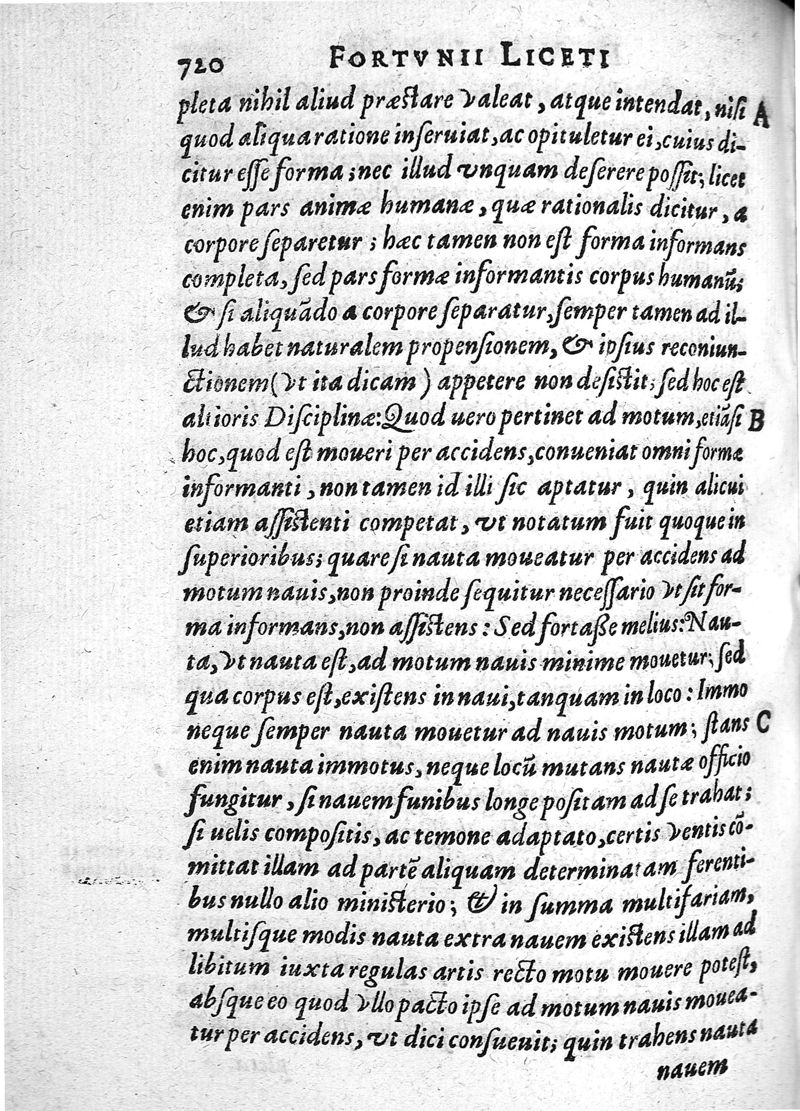 720 FORTVNII LICETI
pleta nihil aliud præstare valeat, atque intendat, nisi A
quod aliqua ratione inseruiat, ac opituletur ei, cuius di-
citur esse forma; nec illud vnquam deserere possit; licet
enim pars animæ humanæ, quæ rationalis dicitur, a
corpore separetur; hæc tamen non est forma informans
completa, sed pars formæ informantis corpus humanũ;
& si aliquãdo a corpore separatur, semper tamen ad il-
lud habet naturalem propensionem, & ipsius reconiun-
ctionem (vt ita dicam) appetere non desistit; sed hoc est
altioris Disciplinæ: Quod uero pertinet ad motum, etiãsi B
hoc, quod est moueri per accidens, conueniat omni formæ
informanti, non tamen id illi sic aptatur, quin alicui
etiam assistenti competat, vt notatum fuit quoque in
superioribus; quare si nauta moueatur per accidens ad
motum nauis, non proinde sequitur necessario vt sit for-
ma informans, non assistens: Sed fortaße melius: Nau-
ta, vt nauta est, ad motum nauis minime mouetur; sed
qua corpus est, existens in naui, tanquam in loco: Immo
neque semper nauta mouetur ad nauis motum; stans C
enim nauta immotus, neque locũ mutans nautæ officio
fungitur, si nauem funibus longe positam ad se trahat;
si uelis compositis, ac temone adaptato, certis ventis cõ-
mittat illam ad partẽ aliquam determinatam ferenti-
bus nullo alio ministerio; & in summa multifariam,
multisque modis nauta extra nauem existens illam ad
libitum iuxta regulas artis recto motu mouere potest,
absque eo quod vllo pacto ipse ad motum nauis mouea-
tur per accidens, vt dici consueuit; quin trahens nauta
nauem